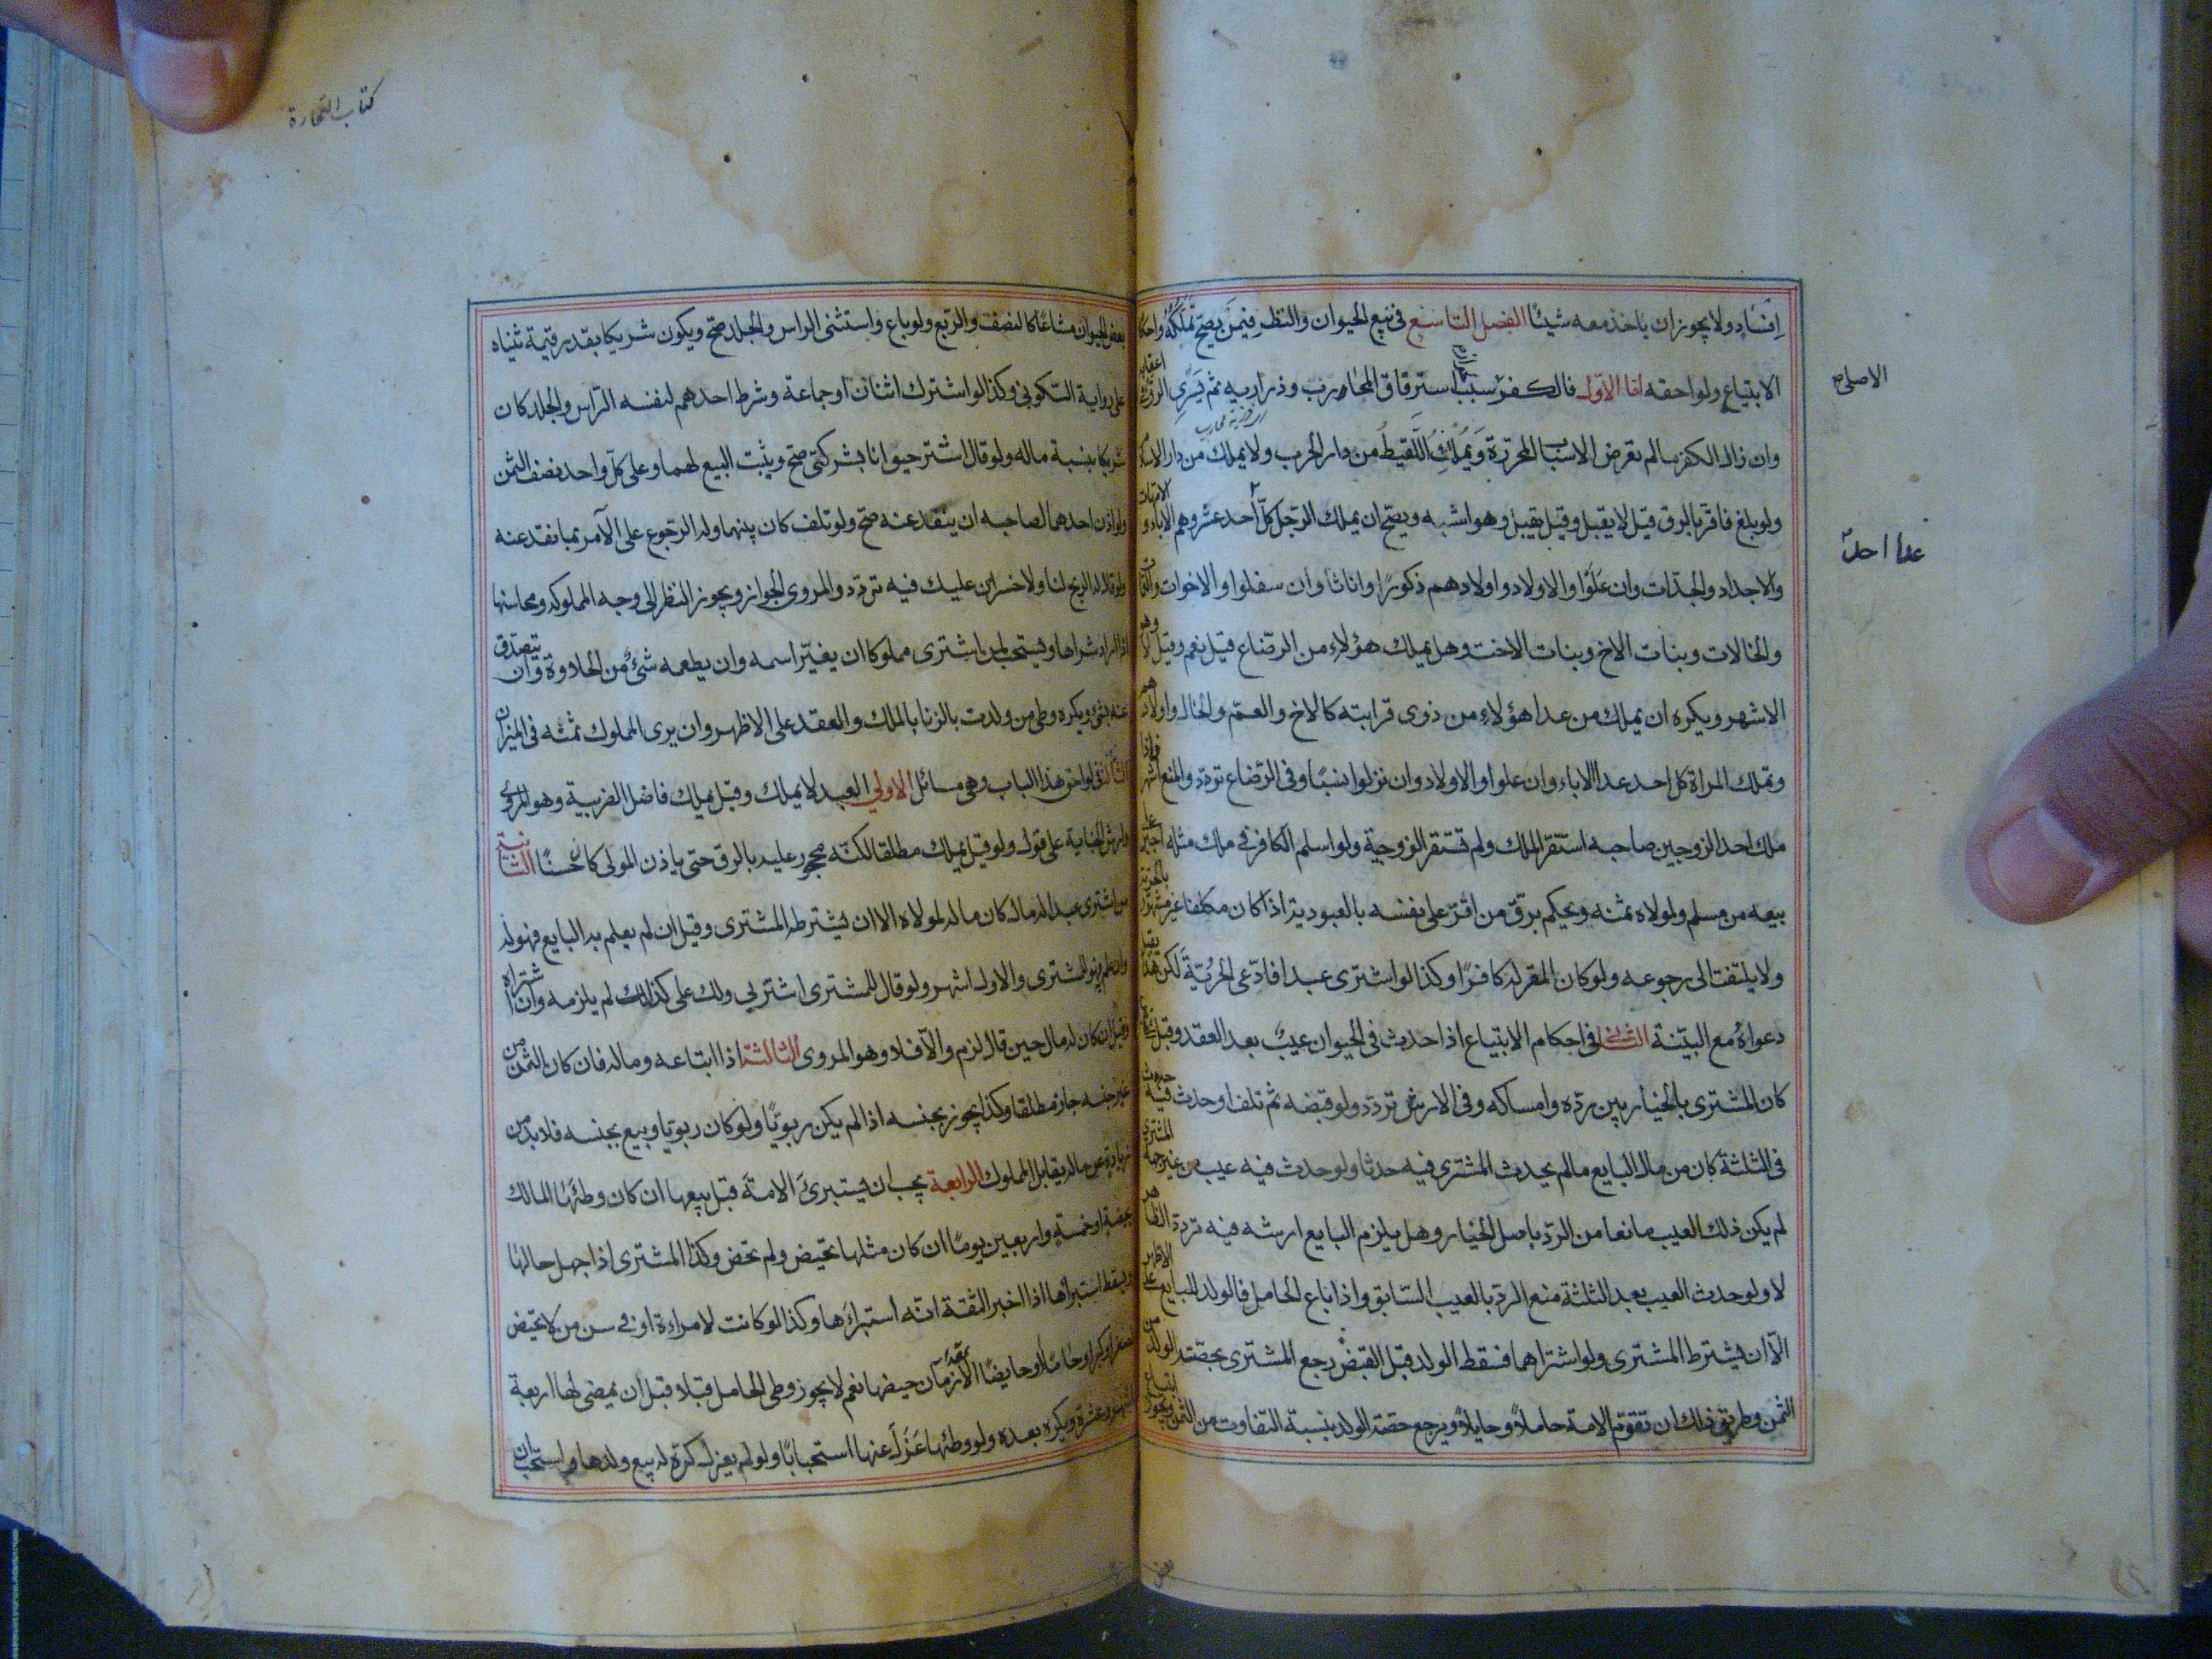 افساد ولا يجوز ان ياخذ معه شيئا الفصل التاسع في بيع الحيوان والنظر فيمن يصح تملكه واحكام
الابتياع ولواحقه اما الاول فالكفر سبب استرقاق المحارب وذراريه ثم يسرى الرق في اعقابه
وان زال الكفر ما لم يعرض الاسباب المحررة ويملك اللقيط من دار الحرب ولا يملك من دار الاسلام
ولو بلغ فاقر بالرق قيل لا يقبل وقيل يقبل وهو اشبه ويصح ان يملك الرجل كل احد عشر وهم الاباء والامهات
والاجداد والجدات وان علوا والاولاد واولادهم ذكورا واناثا وان سفلوا والاخوات والعمات
والخالات وبنات الاخ وبنات الاخت وهل يملك هؤلاء من الرضاع قيل نعم وقيل لا وهو
الاشهر ويكره ان يملك من عدا هؤلاء من ذوى قرابته كالاخ والعم والخال واولادهم
وتملك المراة كل احد عدا الاباء وان علوا والاولاد وان نزلوا نسبا وفي الرضاع تردد والمنع اشهر فاذا
ملك احد الزوجين صاحبه استقر الملك ولم تستقر الزوجية ولو اسلم الكافر في ملك مثله اجبر على
بيعه من مسلم ولمولاه ثمنه ويحكم برق من اقر على نفسه بالعبودية اذا كان مكلفا غير مشهور بالحرية
ولا يلتفت الى رجوعه ولو كان المقر له كافرا وكذا لو اشترى عبدا فادعى الحرية لكن هذا يقبل
دعواه مع البينة الثاني في احكام الابتياع اذا حدث في الحيوان عيب بعد العقد وقبل القبض
كان المشترى بالخيار بين رده وامساكه وفي الارش تردد ولو قبضه ثم تلف او حدث فيه حدث
في الثلثة كان من مال البايع ما لم يحدث المشترى فيه حدثا ولو حدث فيه عيب من غير جهة المشترى
لم يكن ذلك العيب مانعا من الرد باصل الخيار وهل يلزم البايع ارشه فيه تردد الظاهر
لا ولو حدث العيب بعد الثلثة منع الرد بالعيب السابق واذا باع الحامل فالولد للبايع على الاظهر
الا ان يشترط المشترى ولو اشتراهما فسقط الولد قبل القبض رجع المشترى بحصته الولد من
الثمن وطريق ذلك ان تقوم الامة حاملا وحايلا ويرجع حصته الولد بنسبة التفاوت من الثمن ويجوز ابتياع
الاصلى صح
عدا احد
بعض
كتاب التجارة
بعض الحيوان مشاعا كالنصف والربع ولو باع واستثنى الراس والجلد صح ويكون شريكا بقدر قيمة ثنياه
على رواية السكوني وكذا لو اشترك اثنان او جماعة وشرط احدهم لنفسه الراس والجلد كان
شريكا بنسبة ماله ولو قال اشتر حيوانا بشركتي صح ويثبت البيع لهما وعلى كل واحد نصف الثمن
ولو اذن احدهما لصاحبه ان ينقد عنه صح ولو تلف كان بينهما وله الرجوع على الآمر بما نقد عنه
ولو قال له الربح لنا ولا خسران عليك فيه تردد والمروى الجواز ويجوز النظر الى وجه المملوكه ومحاسنها
اذا اراد شراها ويستحب لمن اشترى مملوكا ان يغير اسمه وان يطعمه شئ من الحلاوة وان يتصدق
عنه بشئ ويكره وطى من ولدت بالزنا بالملك والعقد على الاظهر وان يرى المملوك ثمنه في الميزان
الثالث في لواحق هذا الباب وهى مسائل الاولى العبد لا يملك وقيل يملك فاضل الضريبة وهو المروى
وارش الجناية على قول ولو قيل يملك مطلقا لكنه محجور عليه بالرق حتى ياذن المولى كان حسنا الثانية
من اشترى عبدا له مال كان ماله لمولاه الا ان يشترطه المشترى وقيل ان لم يعلم به البايع فهو له
وان علم فهو للمشترى والاول اشهر ولو قال للمشترى اشتر لي ولك على كذا لم يلزمه وان اشتراه
وقيل ان كان له مال حين قال لزم والا فلا وهو المروى الثالثة اذا ابتاعه وماله فان كان الثمن من
غير جنسه جاز مطلقا وكذا يجوز بجنسه اذا لم يكن ربويا ولو كان ربويا وبيع بجنسه فلا بد من
زيادة عن ماله يقابل المملوك الرابعة يجب ان يستبرئ الامة قبل بيعها ان كان وطئها المالك
بحيضة او خمسة واربعين يوما ان كان مثلها تحيض ولم تحض وكذا المشترى اذا جهل حالها
ويسقط استبراها اذا اخبر الثقة انه استبراها وكذا لو كانت لامراة او في سن من لا تحيض
لصغر او كبر او حاملا او حايضا الا بقدر زمان حيضها نعم لا يجوز وطى الحامل قبلا قبل ان يمضى لها اربعة
اشهر وعشرة ويكره بعده ولو وطئها عزل عنها استحبابا ولو لم يعزل كره له بيع ولدها واستحب ان